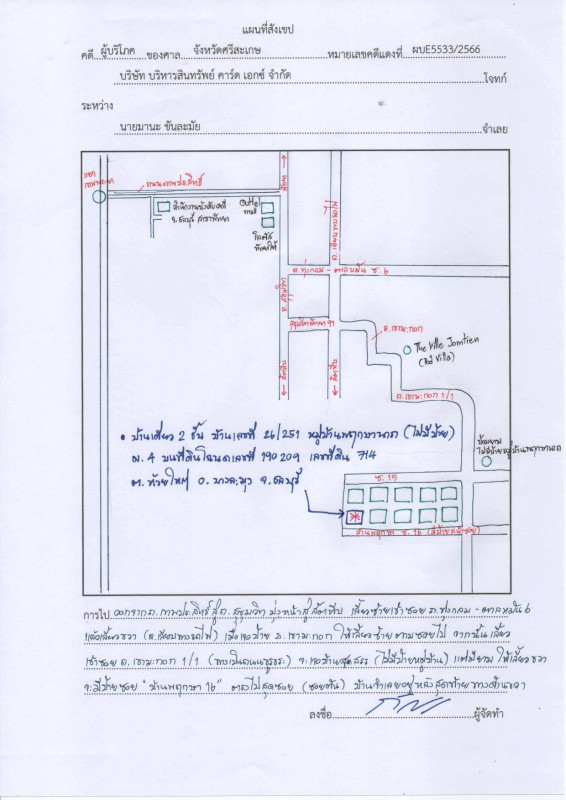 แผนที่สังเขป
คดี ผู้บริโภค ของศาล จังหวัดศรีสะเกษ หมายเลขคดีแดงที่ ผบE5533/2566
บริษัท บริหารสินทรัพย์ คาร์ด เอกซ์ จำกัด โจทก์
ระหว่าง
นายมานะ ขันละมัย จำเลย
แยก
ถนนเทพประสิทธิ์
สำนักงานบังคับคดี
จ.ชลบุรี สาขาพัทยา
Outlet
mall
โลตัส
พัทยาใต้
พัทยา
ถ.สุขุมวิท
ถ.เลียบทางรถไฟ
ถ.ทุ่งกลม - ตาลหมัน ซ. 6
ถ.เขามะกอก
The Ville Jomtien
(Pool Villa)
ถ.เขามะกอก 1/1
สัตหีบ
สัตหีบ
• บ้านเดี่ยว 2 ชั้น บ้านเลขที่ 26/251 หมู่บ้านพฤกษานาถ (ไม่มีป้าย)
ม. 4 บนที่ดินโฉนดเลขที่ 190209 เลขที่ดิน 714
ต. ห้วยใหญ่ อ. บางละมุง จ. ชลบุรี
ป้อมยาม
ไม่มีป้ายหมู่บ้านพฤกษานาถ
ซ. 15
บ้านพฤกษา ซ. 16 (มีป้ายหน้าซอย)
การไป ออกจากถ.เทพประสิทธิ์สู่ถ.สุขุมวิท มุ่งหน้าสู่สัตหีบ เลี้ยวซ้ายเข้าซอย ถ.ทุ่งกลม - ตาลหมัน 6
แล้วเลี้ยวขวา (ถ.เลียบทางรถไฟ) เมื่อเจอป้าย ถ.เขามะกอก ให้เลี้ยวซ้ายตามซอยไป จากนั้นเลี้ยว
เข้าซอย ถ.เขามะกอก 1/1 (ทางเป็นถนนขรุขระ) จะเจอบ้านจัดสรร (ไม่มีป้ายหมู่บ้าน) แต่มียาม ให้เลี้ยวขวา
จะมีป้ายซอย "บ้านพฤกษา 16" ตรงไปสุดซอย (ซอยตัน) บ้านจำเลยอยู่หลังสุดท้ายทางด้านขวา
ลงชื่อ ผู้จัดทำ